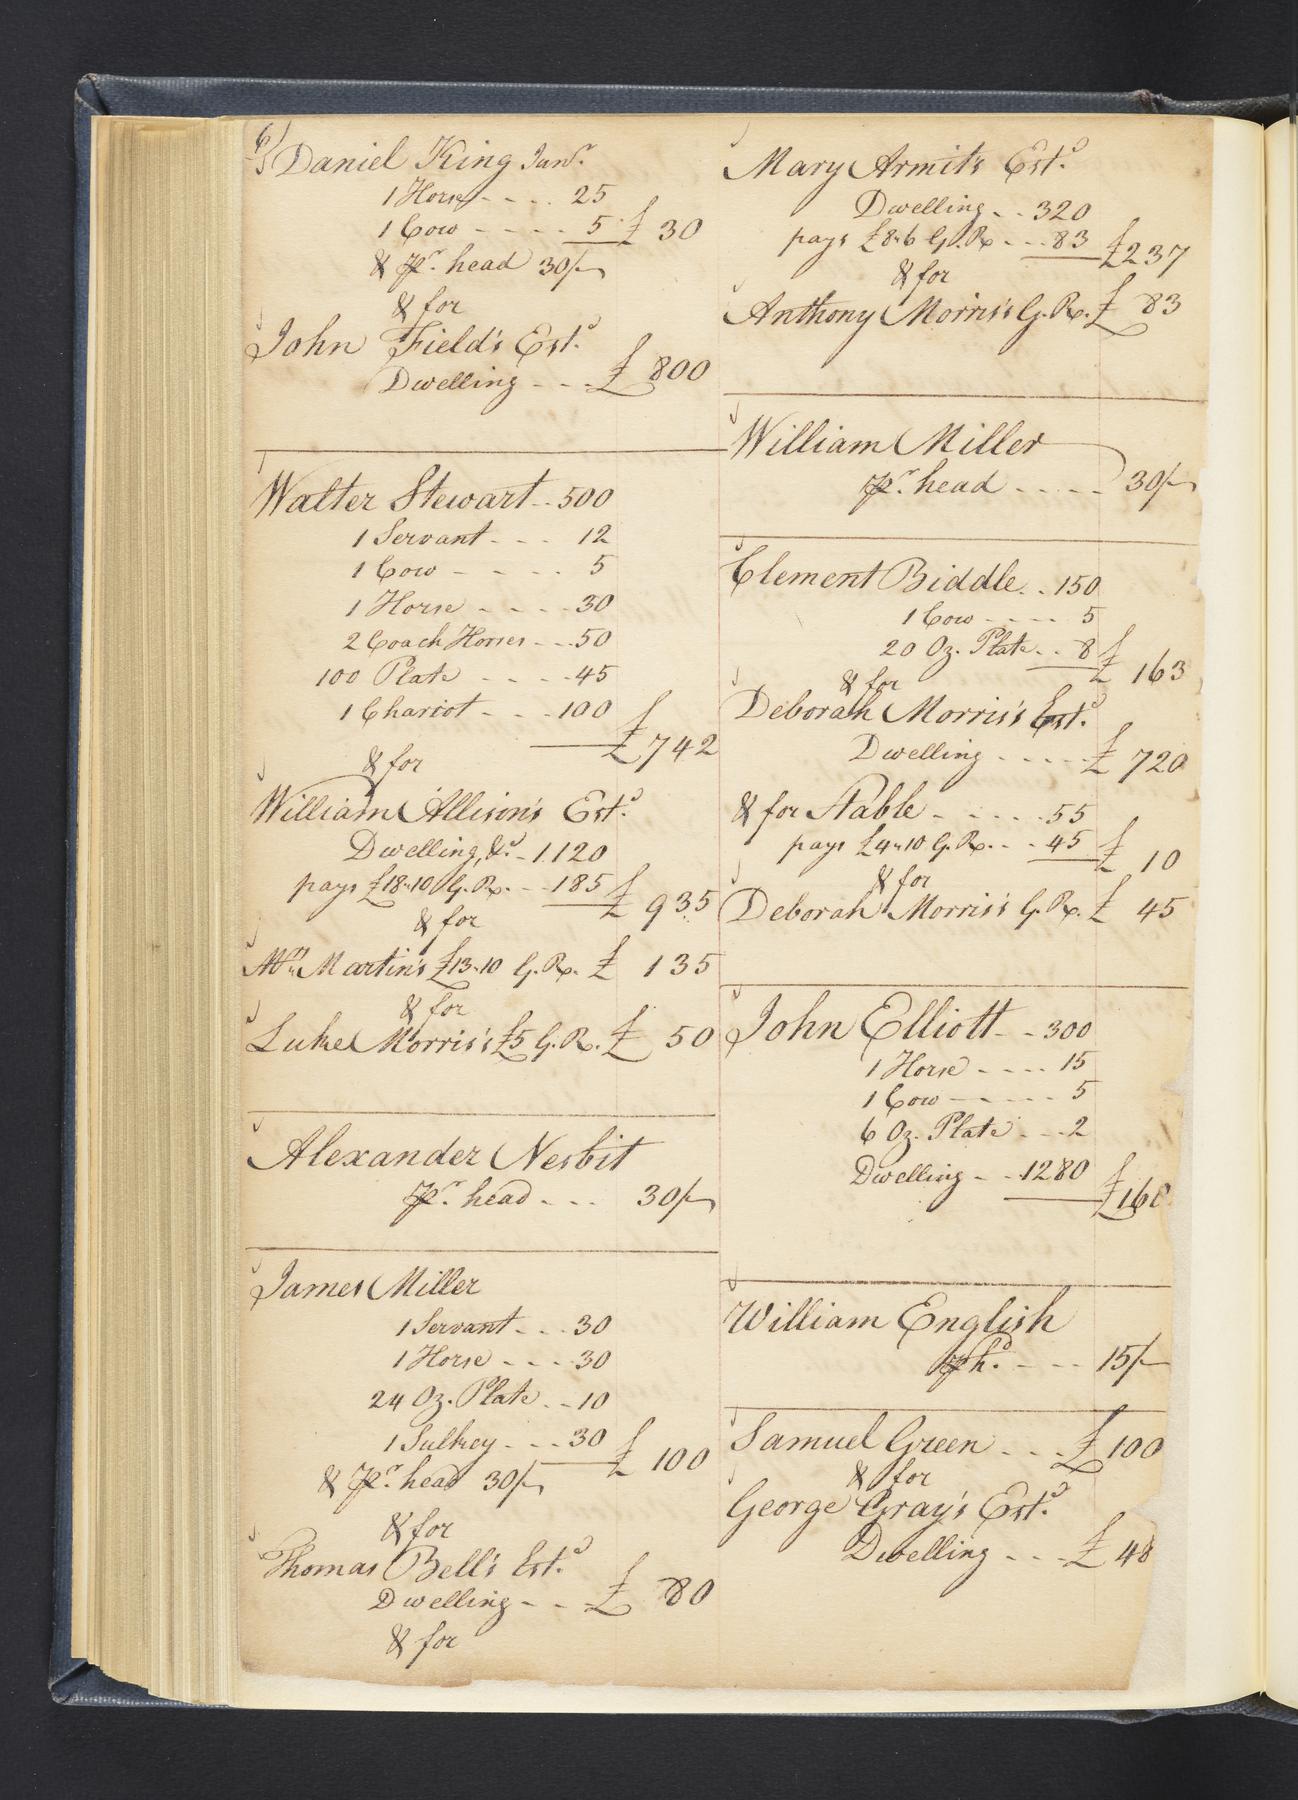 6
Daniel King Junr.
1 Horse - - - . 25
1 Cow - - - - 5 £ 30
& pr. head 30/-
& for
John Field's Estd.
Dwelling - - . £ 800
Walter Stewart - . 500
1 Servant - - - 12
1 Cow - - - - 5
1 Horse - - - - 30
2 Coach Horses - - . 50
100 Plate - - - - . 45
1 Chariot - . - - 100
£ 742
& for
William Allison's Estd.
Dwelling, &c. - 1.120
pays £18.10 G. Rt. - - 185 £ 935
& for
Wm. Martin's £13.10 G. Rt. £ 135
& for
Luke Morris's £5 G. Rt. £ 50
Alexander Nesbit
pr. head - - - 30/-
James Miller
1 Servant - . . 30
1 Horse - - - - 30
24 Oz. Plate . - 10
1 Sulkey - . - - 30 £ 100
& pr. head 30/-
& for
Thomas Bell's Estd.
Dwelling - - - £ 80
& for
Mary Armit's Estd.
Dwelling . . 320
pays £8.6 G. Rt. - - - 83 £ 237
& for
Anthony Morris's G. Rt. £ 83
William Miller
pr. head - - - - - 30/-
Clement Biddle . . 150
1 Cow - - - - 5
20 Oz. Plate . . 8 £ 163
& for
Deborah Morris's Estd.
Dwelling - - - - - £ 720
& for Stable - - - - - 55
pays £4.10 G. Rt. - . 45 £ 10
& for
Deborah Morris's G. Rt. £ 45
John Elliott - - 300
1 Horse - - - - 15
1 Cow - - - - - 5
6 Oz. Plate - - . 2
Dwelling - - 1280 £
William English
ph. - - - 15/-
Samuel Green - - - £ 100
& for
George Gray's Estd.
Dwelling - - - £ 48